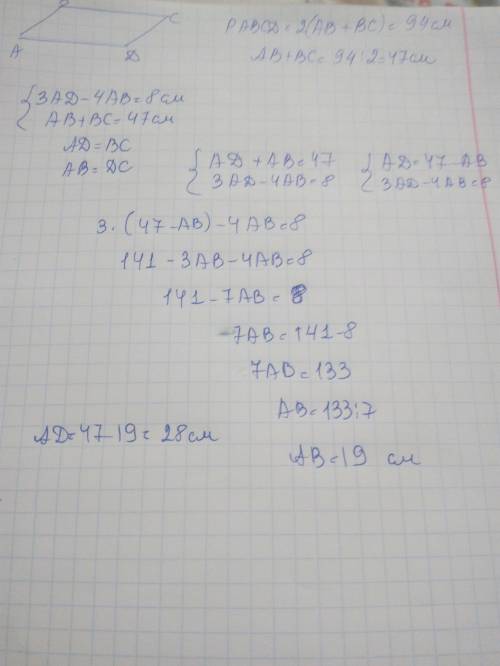 C
A
D
PABCD = 2(AB + BC) = 94см
AB + BC = 94 : 2 = 47см
{ 3AD - 4AB = 8 см
AB + BC = 47 см
AD = BC
AB = DC
{ AD + AB = 47
3AD - 4AB = 8
{ AD = 47 - AB
3AD - 4AB = 8
3 · (47 - AB) - 4AB = 8
141 - 3AB - 4AB = 8
141 - 7AB = 8
7AB = 141 - 8
7AB = 133
AB = 133 : 7
AB = 19 см
AD = 47 - 19 = 28 см